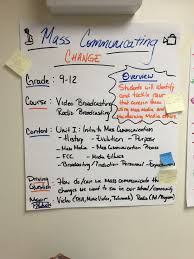 Mass Communicating
CHANGE
Grade: 9-12
Overview
Students will identify
and tackle issues
that concern them
using mass media and
maintaining Media Ethics.
Course: Video Broadcasting
Radio Broadcasting
Content: Unit 1: Intro to Mass Communication
- History - Evolution - Purpose
- Mass Media - Mass Communication Process
- FCC - Media Ethics
- Broadcasting/Production Personnel - Expectations
Driving Question
How do/can we mass communicate the
changes we want to see in our school/community
Major Products
Video (PSA, Movie/Video, Talk Show) Radio (Ad/Program)